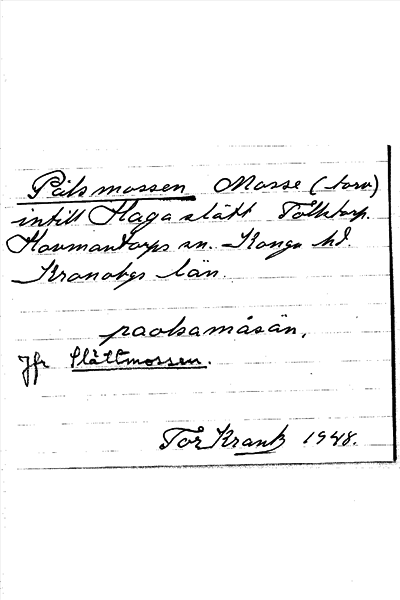 Pålsmossen Mosse (torv)
intill Hagaslätt Tolktorp.
Hovmantorps sn. Konga hd.
Kronobgs län.
paolsamåsän.
Jfr Slättmossen.
Tor Krank 1948.